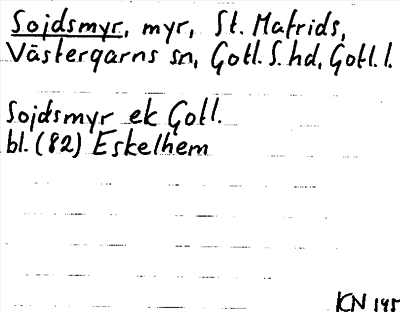 Sojdsmyr, myr, St. Mafrids,
Västergarns sn, Gotl. S. hd, Gotl. l.
Sojdsmyr ek Gotl.
bl. (82) Eskelhem
KN 195